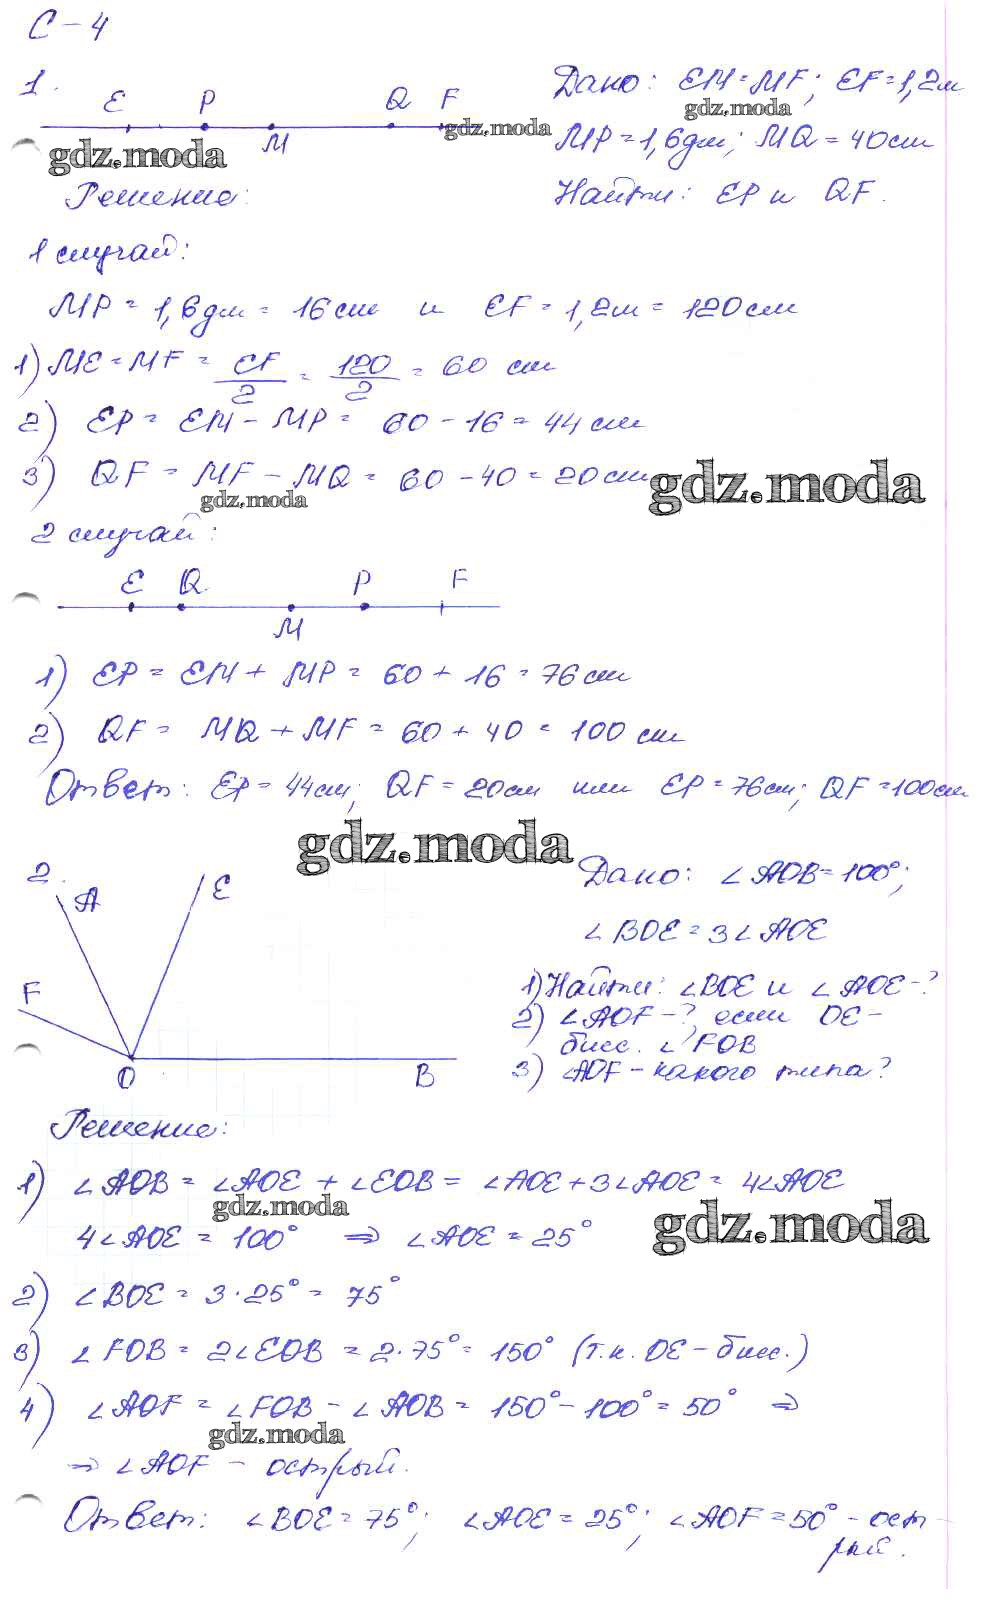 С-4
1.
E P Q F
M
Дано: EM=MF; EF=1,2м
gdz.moda
gdz.moda
MP=1,6дм; MQ=40см
gdz.moda
Решение:
Найти: EP и QF.
1 случай:
MP = 1,6дм = 16см и EF = 1,2м = 120см
1) ME = MF = EF/2 = 120/2 = 60 см
2) EP = EM - MP = 60 - 16 = 44 см
3) QF = MF - MQ = 60 - 40 = 20 см
gdz.moda
gdz.moda
2 случай:
E Q P F
M
1) EP = EM + MP = 60 + 16 = 76 см
2) QF = MQ + MF = 60 + 40 = 100 см
Ответ: EP = 44см; QF = 20см или EP = 76см; QF = 100см
gdz.moda
2.
A E
F
O B
Дано: ∠AOB = 100°;
∠BOE = 3∠AOE
1) Найти: ∠BOE и ∠AOE-?
2) ∠AOF-? если OE-
бисс. ∠FOB
3) ∠AOF - какого типа?
Решение:
1) ∠AOB = ∠AOE + ∠EOB = ∠AOE + 3∠AOE = 4∠AOE
gdz.moda
gdz.moda
4∠AOE = 100° ⇒ ∠AOE = 25°
2) ∠BOE = 3·25° = 75°
3) ∠FOB = 2∠EOB = 2·75° = 150° (т.к. OE - бисс.)
4) ∠AOF = ∠FOB - ∠AOB = 150° - 100° = 50° ⇒
gdz.moda
⇒ ∠AOF - острый.
Ответ: ∠BOE = 75°; ∠AOE = 25°; ∠AOF = 50° - ост-
рый.